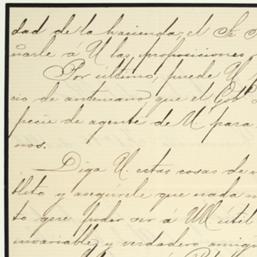 dad de la hacienda, el Sr.
ñarle a U. las proposiciones
Por último, puede U.
cio de antemano, que el
pecie de agente de U. para
nos.
Diga U. estas cosas de
y asegúrele que nada
to gere poder ver a U. util
invariable y verdadero amigo